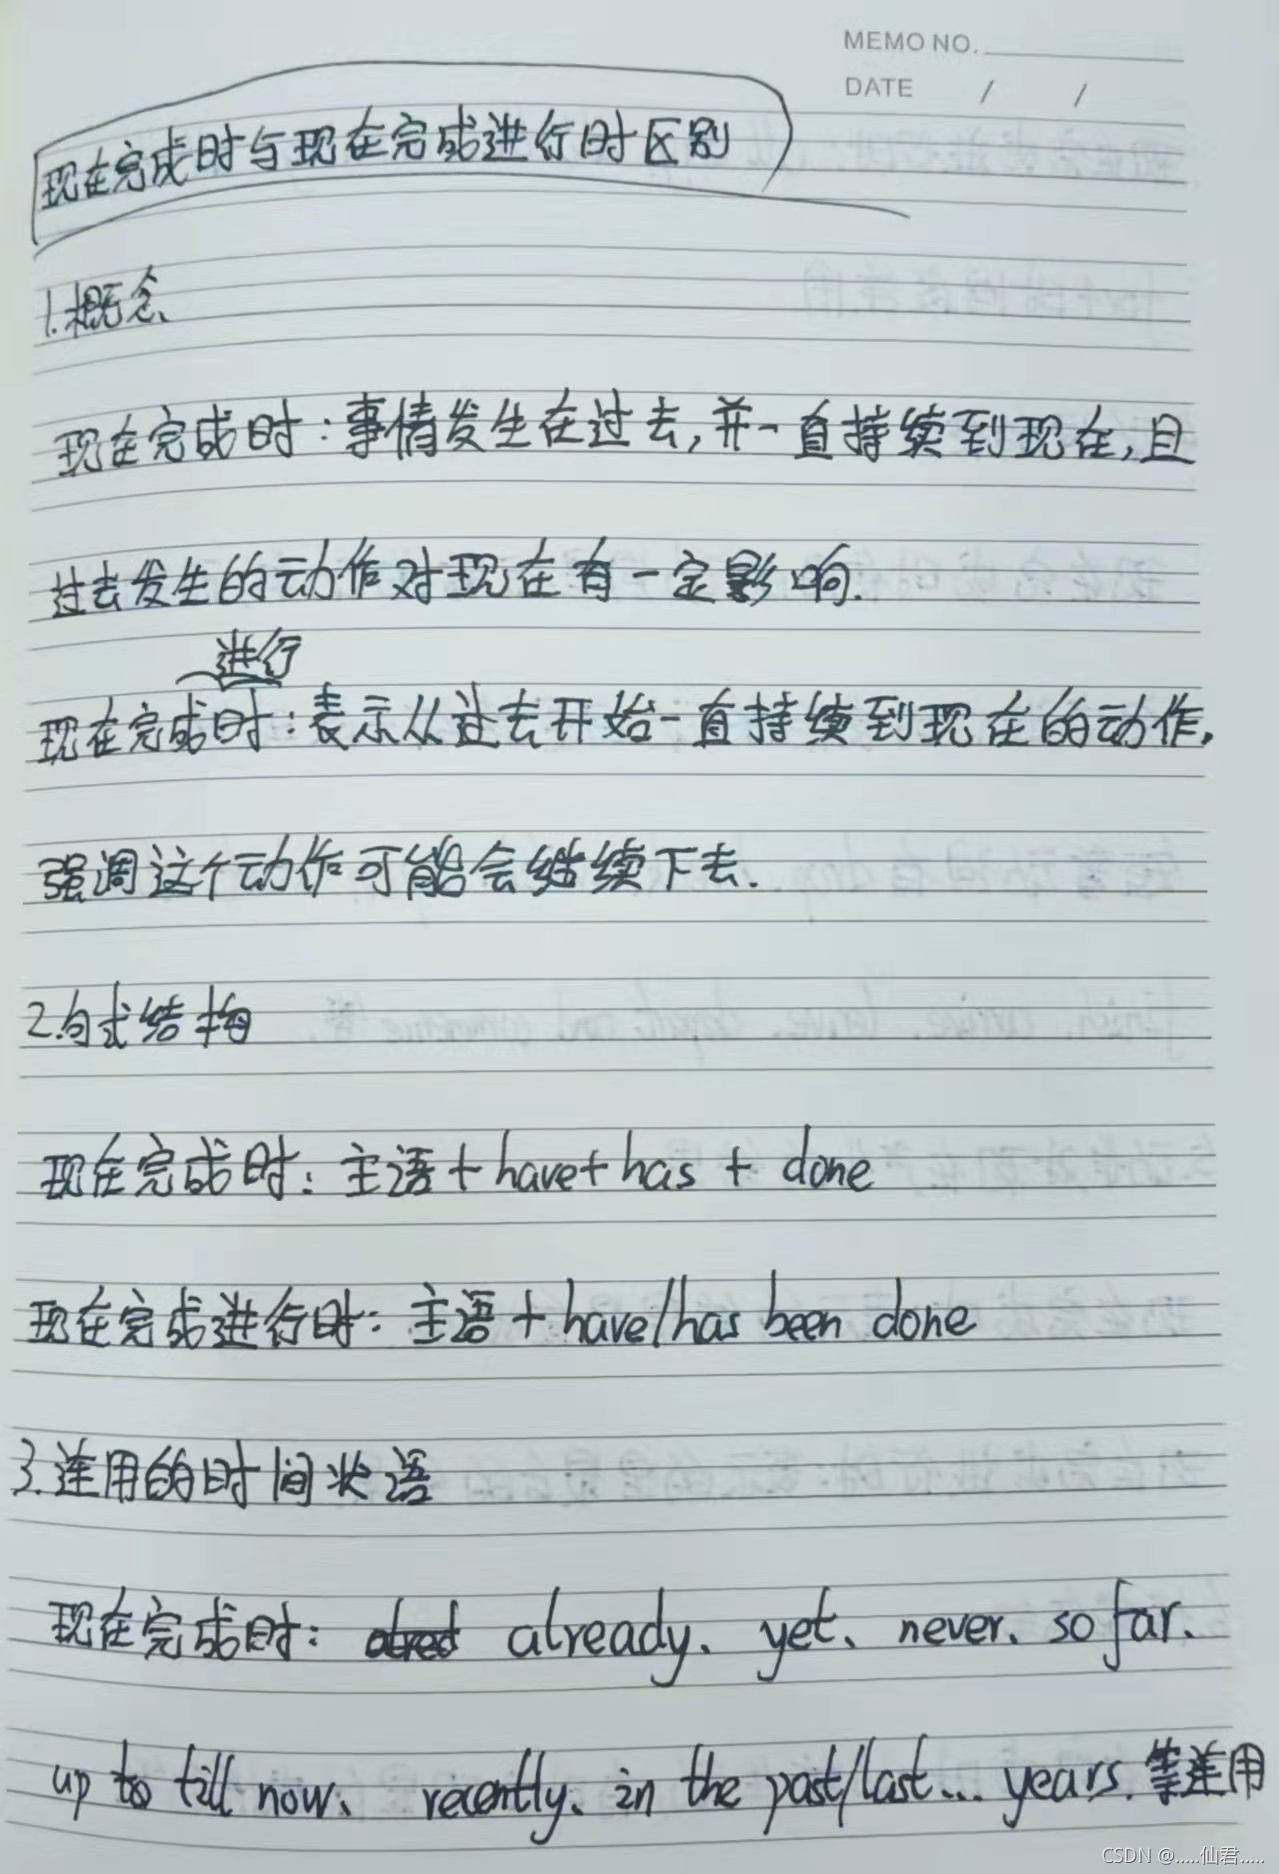 MEMO NO.
DATE / /
现在完成时与现在完成进行时区别
1.概念
现在完成时:事情发生在过去,并一直持续到现在,且
过去发生的动作对现在有一定影响.
进行
现在完成时:表示从过去开始一直持续到现在的动作,
强调这个动作可能会继续下去.
2.句式结构
现在完成时:主语+have+has + done
现在完成进行时:主语+have/has been done
3.连用的时间状语
现在完成时: already、yet、never、so far、
up to till now、recently、in the past/last... years.等连用
CSDN @.....仙君.....